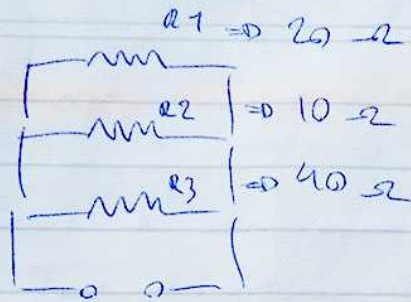 R1 => 20 Ω
R2 => 10 Ω
R3 => 40 Ω